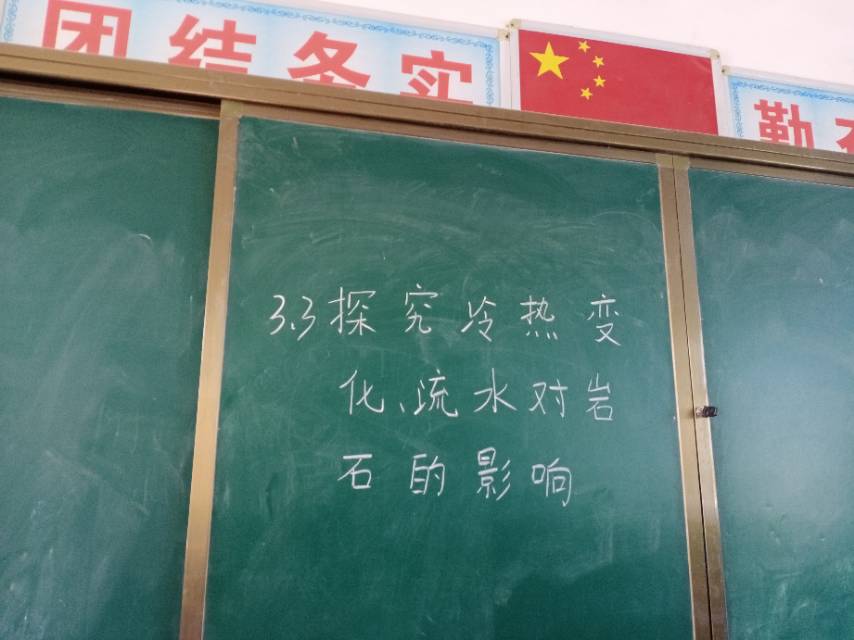 团结务实
勤
3.3探究冷热变
化、疏水对岩
石的影响